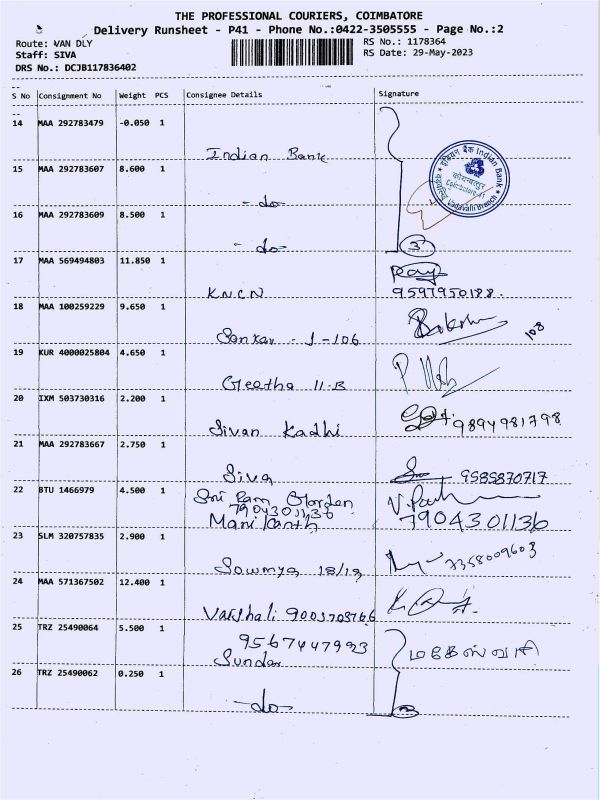 THE PROFESSIONAL COURIERS, COIMBATORE
Delivery Runsheet - P41 - Phone No.:0422-3505555 - Page No.:2
Route: VAN DLY
RS No.: 1178364
Staff: SIVA
RS Date: 29-May-2023
DRS No.: DCJB117836402
S No Consignment No Weight PCS Consignee Details Signature
14 MAA 292783479 -0.050 1
Indian Bank
इंडियन बैंक Indian Bank
कोयम्बत्तूर
Coimbatore-41
Vadavalli Branch
15 MAA 292783607 8.600 1
- do-
16 MAA 292783609 8.500 1
- do-
3
17 MAA 569494803 11.850 1
KNCN
9597950188.
18 MAA 100259229 9.650 1
Sankar - J-106
108
19 KUR 4000025804 4.650 1
Geetha 11-B
20 IXM 503730316 2.200 1
Sivan Kadhi
9894981798
21 MAA 292783667 2.750 1
Siva
9585870717
22 BTU 1466979 4.500 1
Sri Ram Garden
7904301136
Manikanth
7904301136
23 SLM 320757835 2.900 1
Sowmya 18/19
7358009603
24 MAA 571367502 12.400 1
Varshali 9003708766
25 TRZ 25490064 5.500 1
9567447993
Sundar
மகேஸ்வரி
26 TRZ 25490062 0.250 1
-do-
2